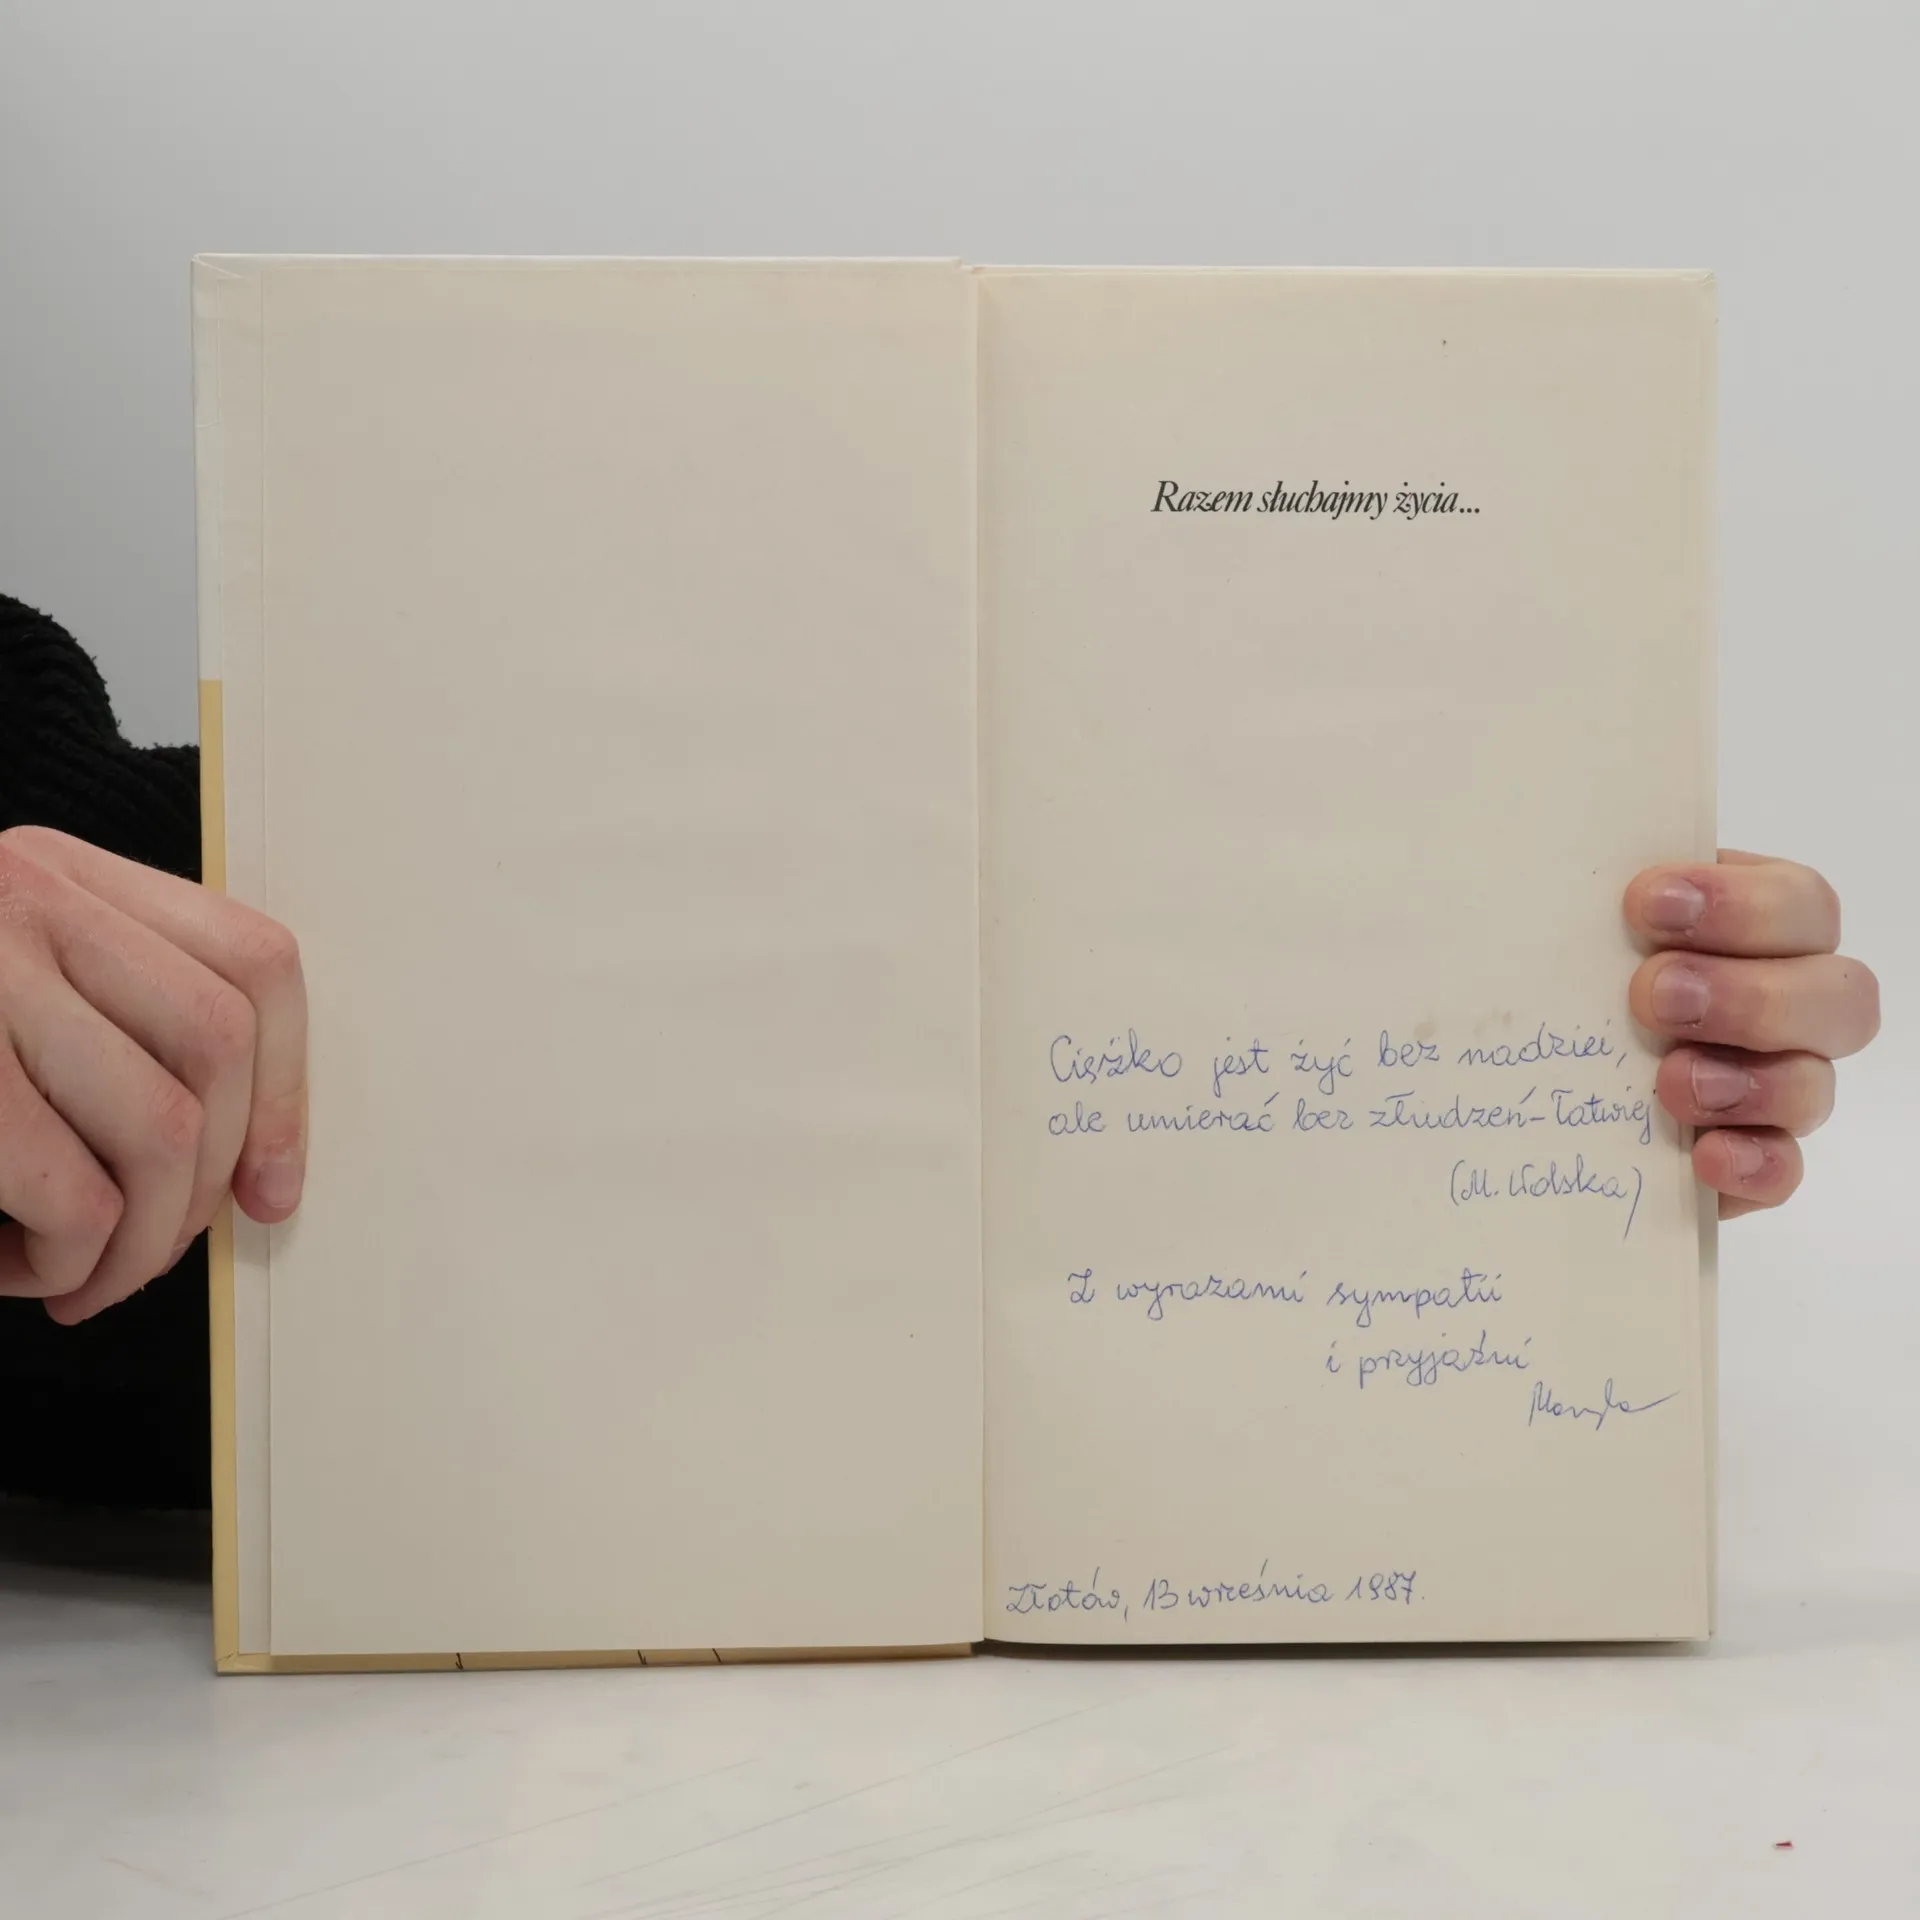 Razem słuchajmy życia...
Ciężko jest żyć bez nadziei,
ale umierać bez złudzeń - łatwiej
(M. Wolska)
Z wyrazami sympatii
i przyjaźni
Złotów, 13 września 1987.